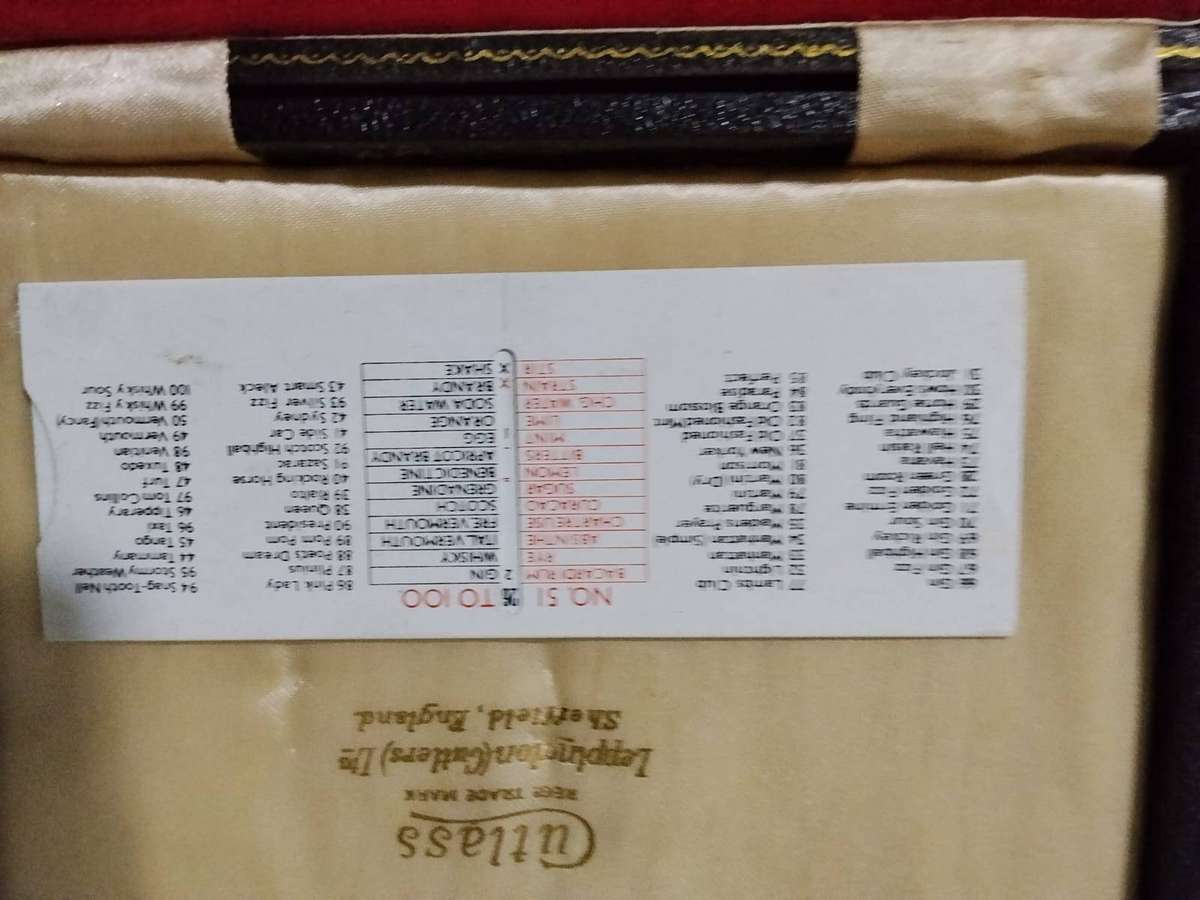 Cutlass
REGD TRADE MARK
Leppington (Cutlers) Ltd
Sheffield, England.
NO. 51 26 TO 100.
66 Gin
67 Gin Fizz
68 Gin Highball
69 Gin Rickey
70 Gin Sour
71 Golden Ermine
72 Golden Fizz
28 Green Room
73 Havana
74 Hell Raisin
75
76 Highland Fling
29 Horse Guards
30 Hows Everybody
31 Jockey Club
77 Lambs Club
32 Lightnin
33 Manhattan
34 Manhattan (Simple)
35 Maidens Prayer
78 Marguerite
79 Martini
80 Martini (Dry)
81 Morrison
36 New Yorker
37 Old Fashioned
82 Old Fashioned Mint
83 Orange Blossom
84 Paradise
85 Perfect
BACARDI RUM 2 GIN
RYE WHISKY
ABSINTHE ITAL VERMOUTH
CHARTREUSE FRE VERMOUTH
CURACAO SCOTCH
SUGAR GRENADINE
LEMON BENEDICTINE
BITTERS APRICOT BRANDY
MINT EGG
LIME ORANGE
CHG. WATER SODA WATER
STRAIN X BRANDY
STIR X SHAKE
86 Pink Lady
87 Plinius
88 Poets Dream
89 Pom Pom
90 President
38 Queen
39 Rialto
40 Rocking Horse
91 Sazarac
92 Scotch Highball
41 Side Car
42 Sydney
93 Silver Fizz
43 Smart Aleck
94 Snag-Tooth Nell
95 Stormy Weather
44 Tammany
45 Tango
96 Taxi
46 Tipperary
97 Tom Collins
47 Turf
48 Tuxedo
98 Venitian
49 Vermouth
50 Vermouth (Fancy)
99 Whisky Fizz
100 Whisky Sour